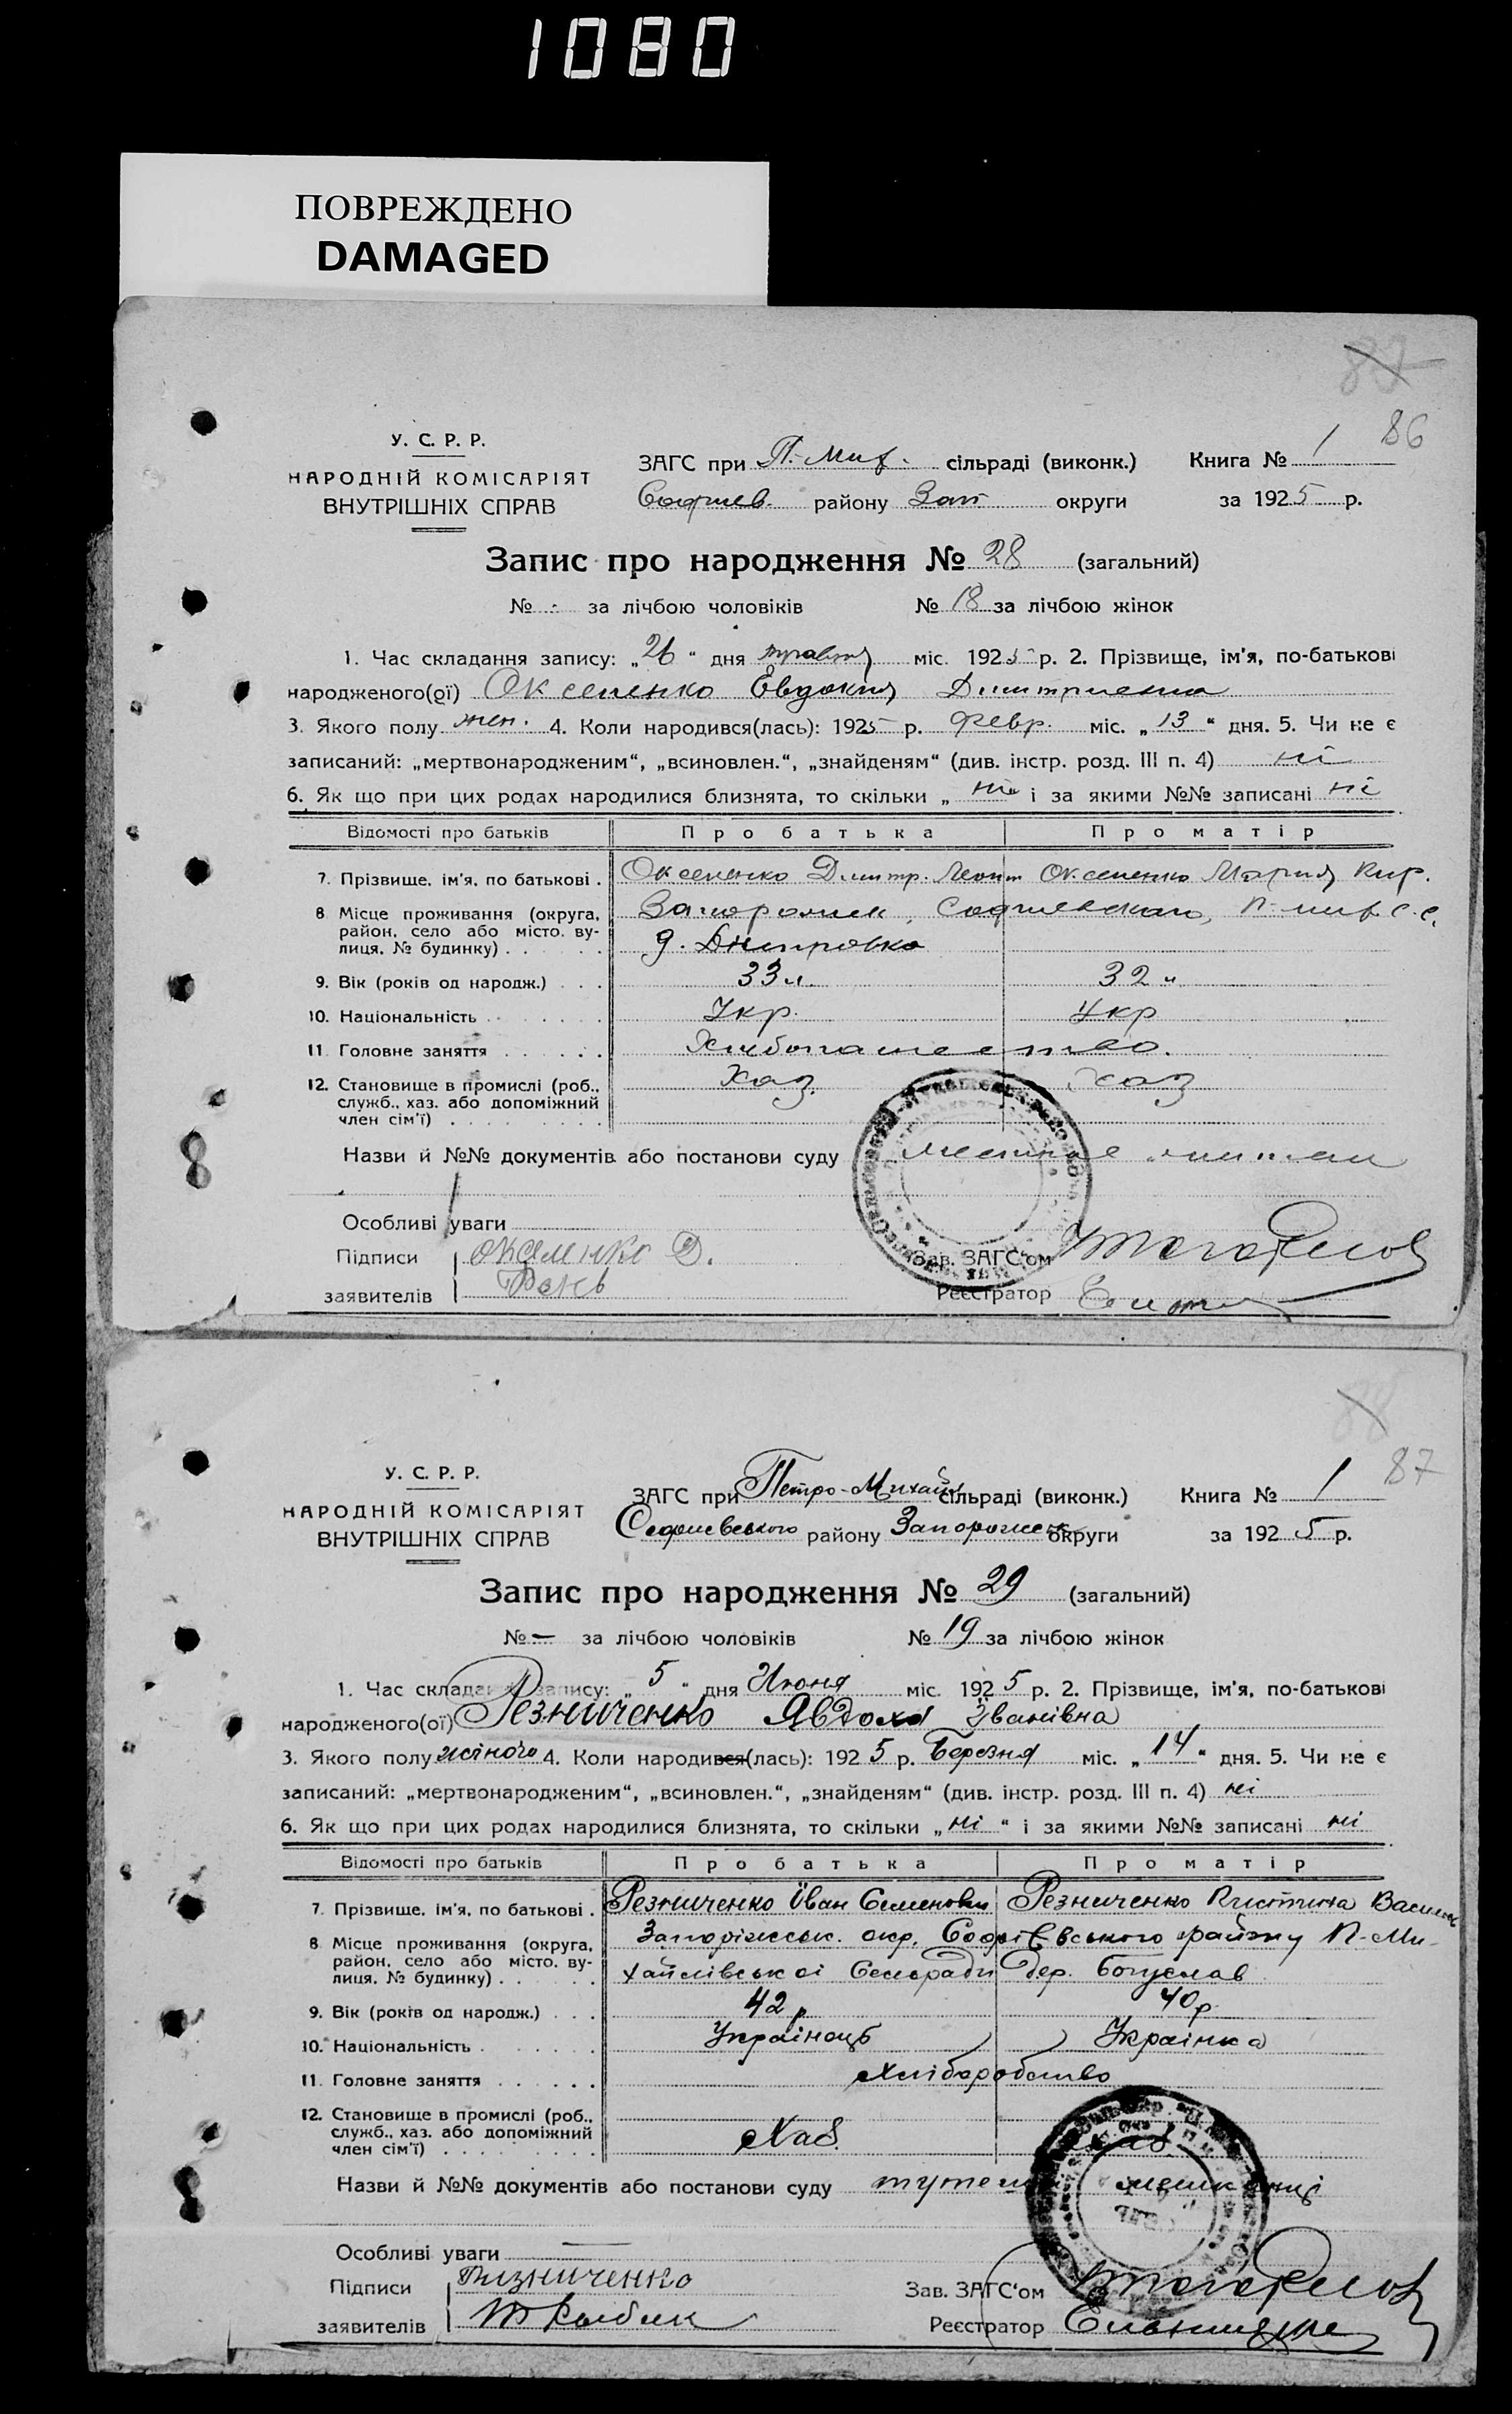 1080
ПОВРЕЖДЕНО
DAMAGED
83
86
У. С. Р. Р.
НАРОДНІЙ КОМІСАРІЯТ
ВНУТРІШНІХ СПРАВ
ЗАГС при П.-Мих. сільраді (виконк.) Книга № 1
Софиев. району Зап округи за 1925 р.
Запис про народження № 28 (загальний)
№ - за лічбою чоловіків № 18 за лічбою жінок
1. Час складання запису: „26“ дня травня міс. 1925 р. 2. Прізвище, ім'я, по-батькові
народженого(ої) Оксененко Евдокия Димитриевна
3. Якого полу жен. 4. Коли народився(лась): 1925 р. февр. міс. „13“ дня. 5. Чи не є
записаний: „мертвонародженим“, „всиновлен.“, „знайденям“ (див. інстр. розд. III п. 4) ні
6. Як що при цих родах народилися близнята, то скільки „ні“ і за якими №№ записані ні
Відомості про батьків Про батька Про матір
7. Прізвище, ім'я, по батькові . Оксененко Димитр. Леонт Оксененко Мария Кир.
8 Місце проживання (округа, район, село або місто, вулиця, № будинку) . . Запорожск, Софиевского, П-мих. с. с.
д. Днипровка
9. Вік (років од народж.) . . . 33 л. 32 л
10. Національність Укр. Укр
11 Головне заняття Хлибопашество.
12. Становище в промислі (роб., служб., хаз. або допоміжний член сім'ї) Хаз. Хаз
Назви й №№ документів або постанови суду
Особливі уваги
Підписи Оксененко Д.
заявителів
Зав. ЗАГС'ом
Реєстратор
88
87
У. С. Р. Р.
НАРОДНІЙ КОМІСАРІЯТ
ВНУТРІШНІХ СПРАВ
ЗАГС при Петро-Михайл сільраді (виконк.) Книга № 1
Софиевського району Запорожск округи за 1925 р.
Запис про народження № 29 (загальний)
№ — за лічбою чоловіків № 19 за лічбою жінок
1. Час складання запису: „5“ дня Июня міс. 1925 р. 2. Прізвище, ім'я, по-батькові
народженого(ої) Резниченко Явдоха Іванівна
3. Якого полу жіночо 4. Коли народився(лась): 1925 р. Березня міс. „14“ дня. 5. Чи не є
записаний: „мертвонародженим“, „всиновлен.“, „знайденям“ (див. інстр. розд. III п. 4) ні
6. Як що при цих родах народилися близнята, то скільки „ні“ і за якими №№ записані ні
Відомості про батьків Про батька Про матір
7. Прізвище, ім'я, по батькові . Резниченко Іван Семенович Резниченко Христина Васил
8 Місце проживання (округа, район, село або місто, вулиця, № будинку) . . Запоріжськ. окр. Софіевського району П-Ми-
хайлівськоі Сельради дер. Богуслав
9. Вік (років од народж.) . . . 42 р 40 р.
10. Національність Украінець Украінка
11. Головне заняття Хліборобство
12. Становище в промислі (роб., служб., хаз. або допоміжний член сім'ї) Хаз. Хаз.
Назви й №№ документів або постанови суду мешканці
Особливі уваги —
Підписи Ризниченко
заявителів
Зав. ЗАГС'ом
Реєстратор